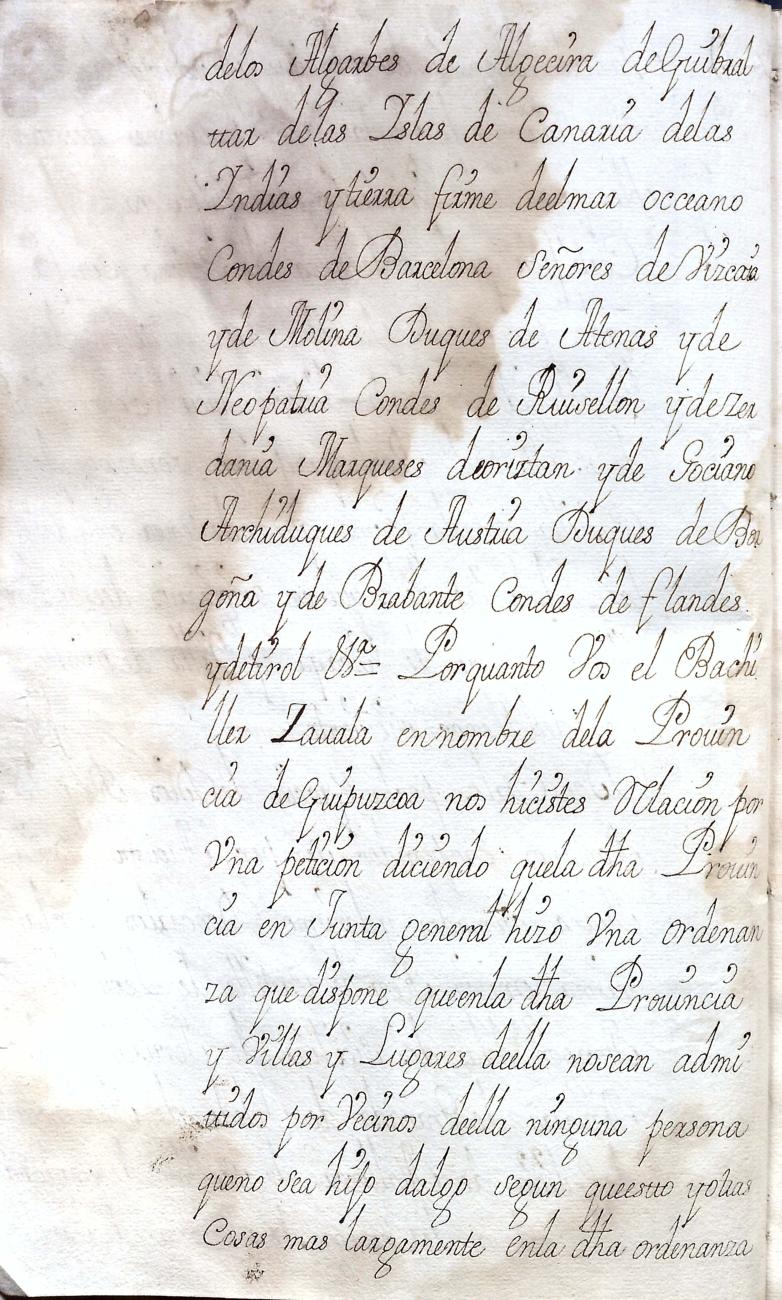 delos Algarbes de Algecira de Guibral
ttar delas Yslas de Canaria delas
Yndias ytierra firme deelmar occeano
Condes de Barcelona Señores de Vizcaia
yde Molina Duques de Atenas yde
Neopatria Condes de Ruisellon ydeZer
dania Marqueses deoriztan yde Gociano
Archiduques de Austria Duques de Bor
goña yde Brabante Condes de flandes
ydetirol &ª Porquanto Vos el Bachi
ller Zauala ennombre dela Prouin
cia de Guipuzcoa nos hicistes Relacion por
Vna peticion diciendo quela dha Prouin
cia en Junta general hizo Vna ordenan
za que dispone queenla dha Prouincia
y Villas y Lugares deella nosean admi
ttidos por Vecinos deella ninguna persona
queno sea hijo dalgo segun queestto yottras
Cosas mas largamente enla dha ordenanza